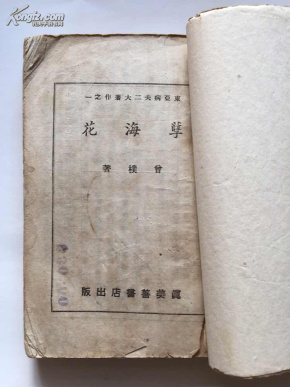 東亞病夫二大著作之一
孽海花
曾樸著
眞美善書店出版